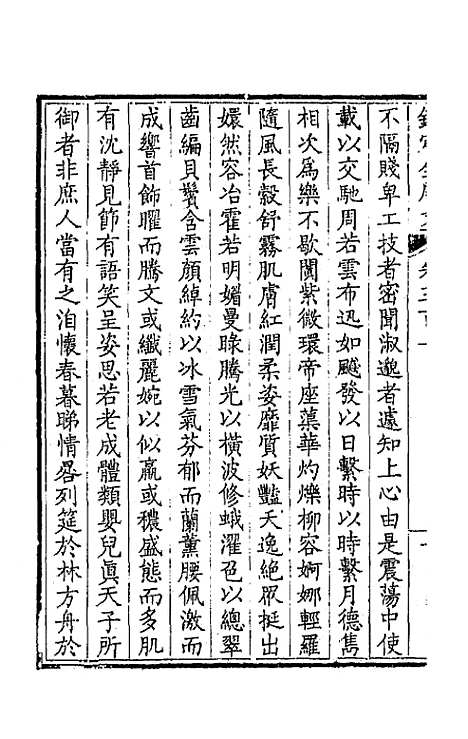 不隔賤卑工技者密聞淑邈者遽知上心由是震蕩中使
載以交馳周若雲布迅如飈發以日繫時以時繫月德雋
相次為樂不歇闐紫微環帝座蕖華灼爍柳容婀娜輕羅
隨風長縠舒霧肌膚紅潤柔姿靡質妖豔夭逸絕眾挺出
嬛然容冶霍若明媚曼睩騰光以橫波修蛾濯色以總翠
齒編貝鬢含雲顏綽約以冰雪氣芬郁而蘭薰腰佩激而
成響首飾曜而騰文或纖麗婉以似羸或穠盛態而多肌
有沈靜見節有語笑呈姿思若老成體類嬰兒真天子所
御者非庶人當有之洎懷春暮睇情晷列筵於林方舟於